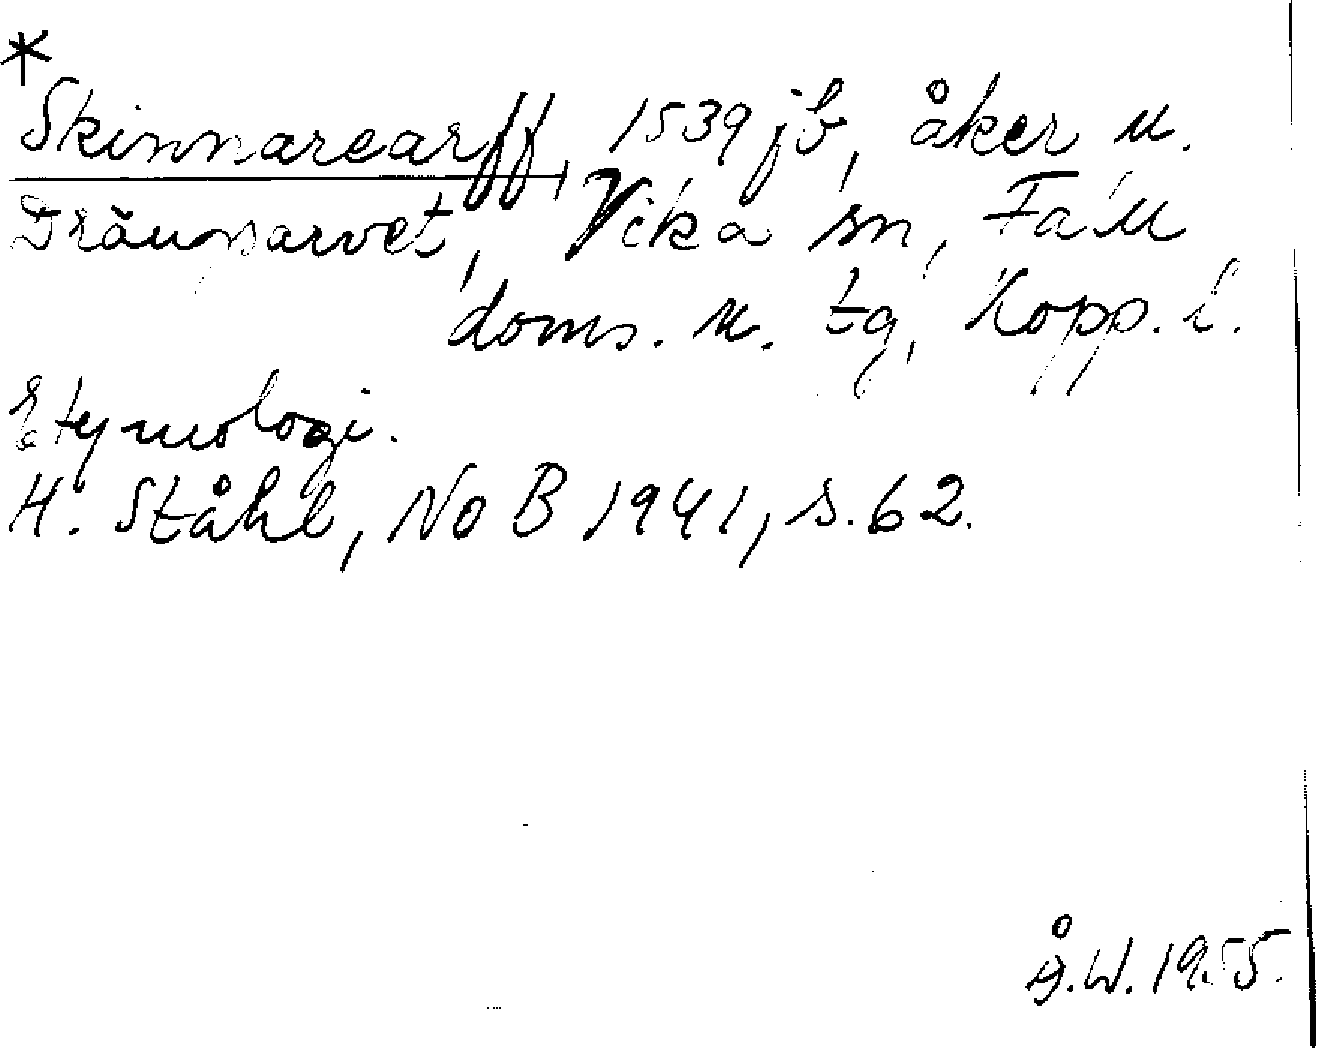 *
Skinnarearff, 1539 jb, åker u.
Dräuparvet, Vika sn, Falu
doms. u. tg, Kopp. l.
Etymologi.
H. Ståhl, NoB 1941, s. 62.
Å.W. 1955.